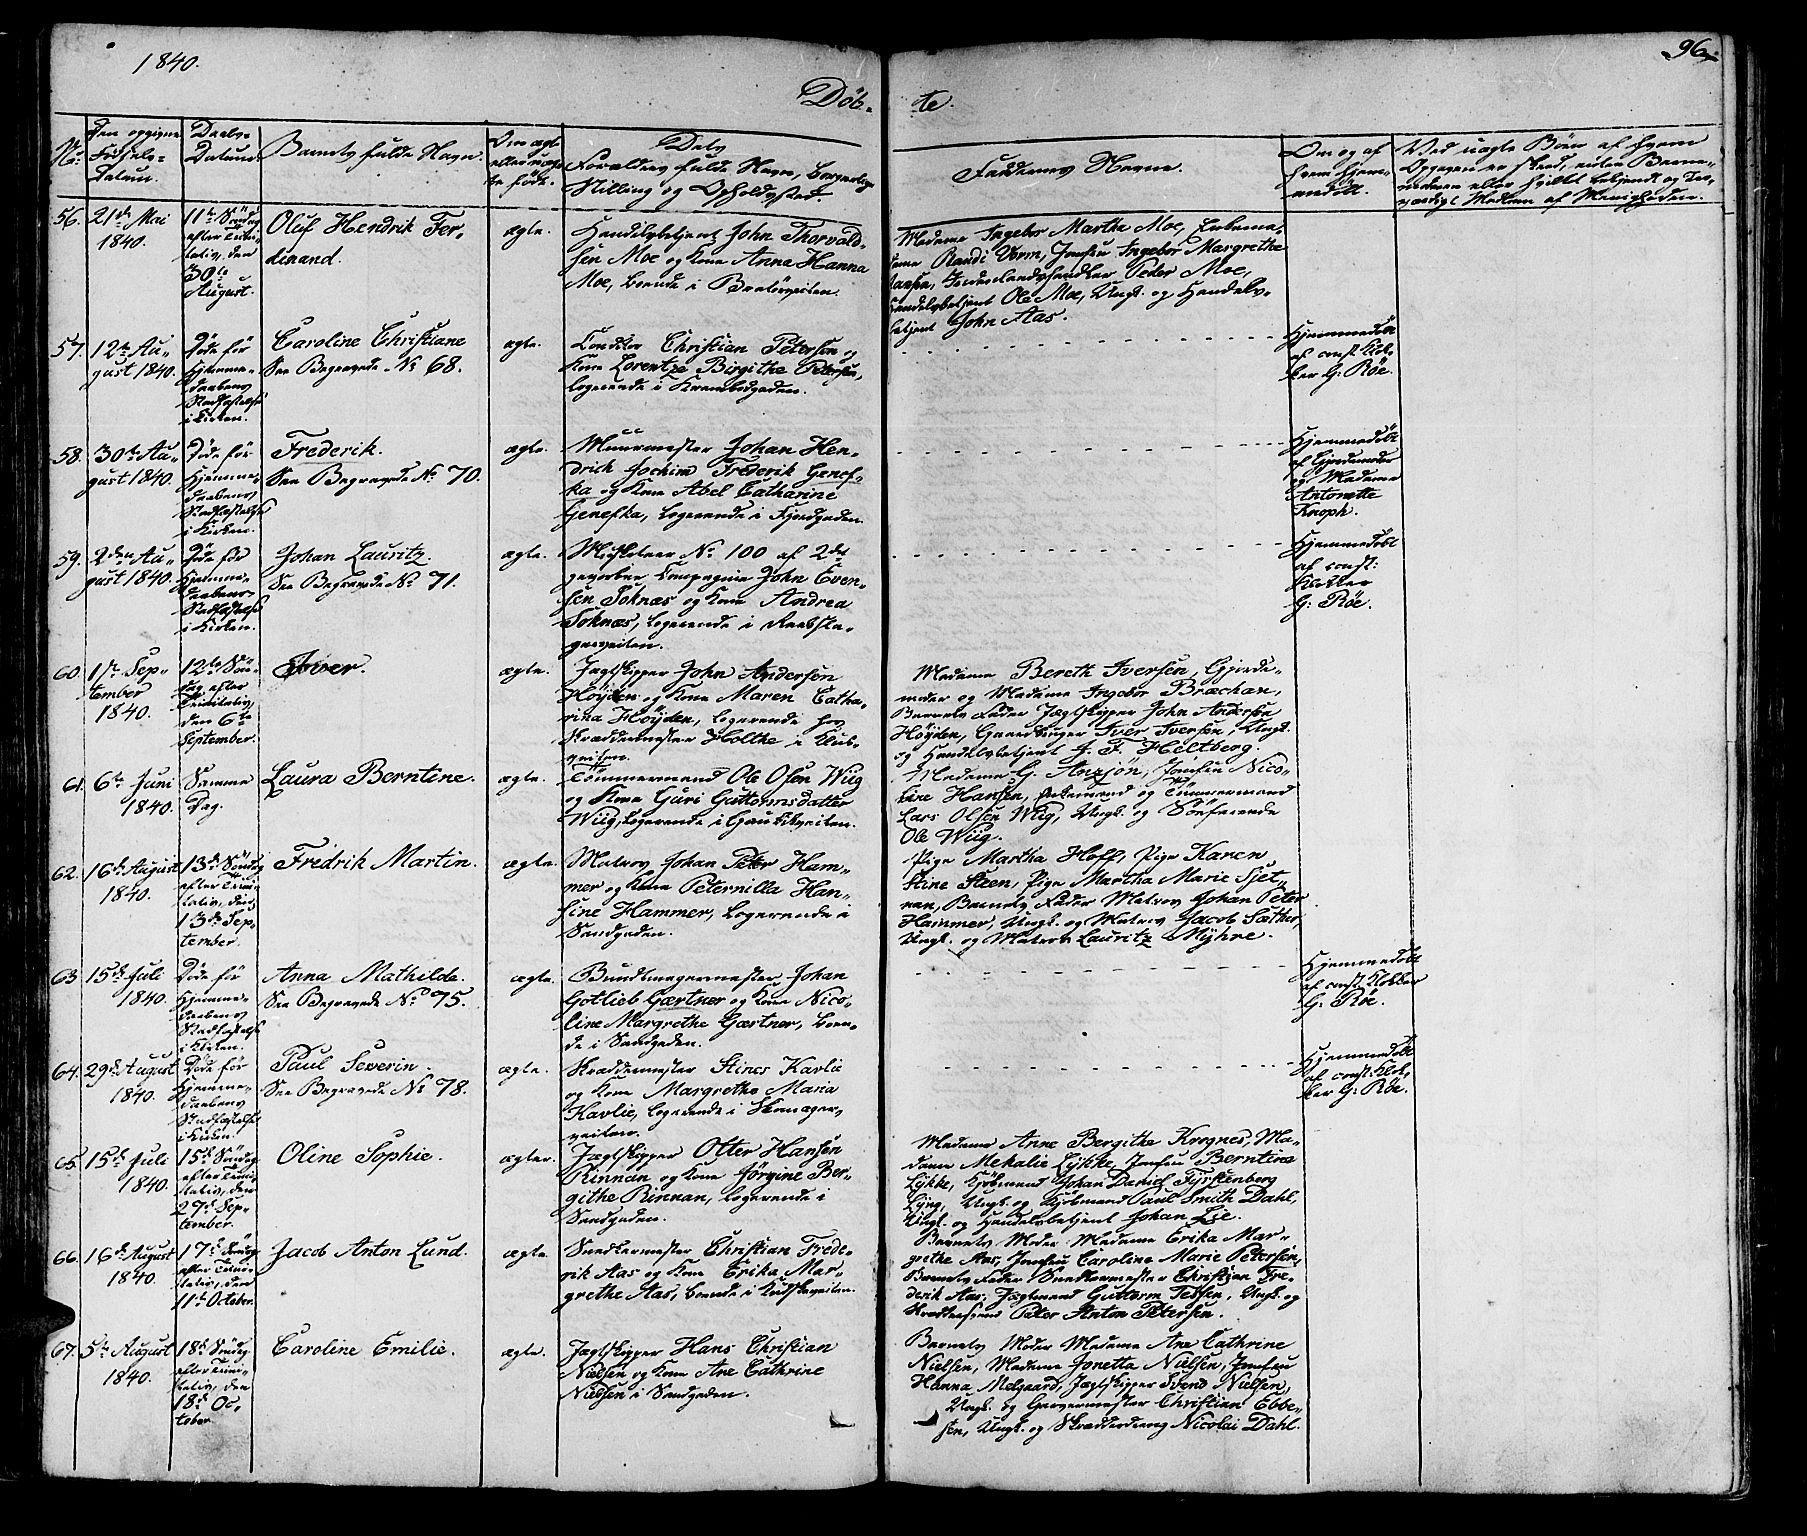 1840.
96
Døb-
te.
No.
Den opgivne
Fødsels-
Datum.
Daabs-
Datum.
Barnets fulde Navn.
Om ægte
eller uæg-
te født.
Dets
Forældres fulde Navn, Borgerlige
Stilling og Opholdssted.
Faddernes Navne.
Om og af
hvem hjem-
medøbt.
Ved uægte Børn af hvem
Opgaven er skeed, enten Barne-
moderen eller hvilket bekjendt og tro-
værdigt Medlem af Menigheden.
56.
21de Mai
1840.
11te Søndag
efter Trini-
tatis, den
30te
August.
Oluf Hendrik Fer-
dinand.
ægte.
Handelsbetjent John Thorvald-
sen Moe og Kone Anna Hanna
Moe, boende i
Madame Ingebor Martha Moe, Enkema-
dame Randi Worm, Jomfru Ingebor Margrethe
Hansen, Peder Moe,
Handelsbetjent Ole Moe, Ungk. og Handels-
betjent John Aas.
57.
12te Au-
gust 1840.
Døde før
Hjemme-
daabens
Stadfæstelse
i Kirken.
Caroline Christiane
See Begravede No 68.
ægte.
Conditor Christian Petersen og
Kone Lorentze Birgithe Petersen,
logerende i Krambodgaden.
Hjemmedøbt
af const. Klok-
ker G: Røe.
58.
30te Au-
gust 1840.
Døde før
Hjemme-
daabens
Stadfæstelse
i Kirken.
Frederik.
See Begravede No 70.
ægte.
Muurmester Johan Hen-
drik Jochim Frederik Genef-
ka og Kone Abel Catharine
Genefka, logerende i Fjordgaden.
Hjemmedøbt
af Gjordemoder
og Madame
Antonette
Knoph.
59.
2den Au-
gust 1840.
Døde før
Hjemme-
daabens
Stadfæstelse
i Kirken.
Johan Lauritz.
See Begravede No 71.
ægte.
Musketeer No 100 af 2det
gevorbne Compagnie John Even-
sen Soknæs og Kone Andrea
Soknæs, logerende i
Hjemmedøbt
af const:
Klokker
G: Røe.
60.
1ste Sep-
tember
1840.
12te Søn-
dag efter
Trinitatis,
den 6te
September.
Iver.
ægte.
Jagtskipper John Andersen
Høyden og Kone Maren Catha-
rina Høyden, logerende hos
Skræddermester Holthe i Klub-
veiten.
Madame Bereth Iversen, Gjorde-
moder og Madame Ingebor Bræchan,
Barnets Fader Jagtskipper John Andersen
Høyden, Iver Iversen, Ungk.
og Handelsbetjent J. F. Heltberg.
61.
6te Juni
1840.
Samme
Dag.
Laura Berntine.
ægte.
Tømmermand Ole Olsen Wiig
og Kone Guri Guttormsdatter
Wiig, logerende i Gaukitveiten.
Madame G. Anzjøn, Jomfru Nico-
line Hansen, Enkemand og Tømmermand
Lars Olsen Wiig, Ungk. og Søefarende
Ole Wiig.
62.
16de August
1840.
13de Søndag
efter Trini-
tatis, den
13de Sep-
tember.
Fredrik Martin.
ægte.
Matros Johan Peter Ham-
mer og Kone Peternilla Han-
sine Hammer, logerende i
Sandgaden.
Pige Martha Hoff, Pige Karen
Stine Steen, Pige Martha Marie Sjet-
nan, Barnets Fader Matros Johan Peter
Hammer, Ungk. og Matros Jacob Sæther,
Ungk. og Matros Lauritz Myhre.
63
15de Juli
1840.
Døde før
Hjemme-
daabens
Stadfæstelse
i Kirken.
Anna Mathilde.
See Begravede No 75.
ægte.
Bundtmagermester Johan
Gotlieb Gærtner og Kone Nico-
line Margrethe Gærtner, boen-
de i Sandgaden.
Hjemmedøbt
af const. Klokker
G: Røe.
64.
29de August
1840.
Døde før
Hjemme-
daabens
Stadfæstelse
i Kirken.
Paul Severin.
See Begravede No 78.
ægte.
Skræddermester Stines Kavlie
og Kone Margrethe Maria
Kavlie, logerende i Skomager-
veiten.
Hjemmedøbt
af const. Klok-
ker G: Røe.
65.
15de Juli
1840.
15de Søndag
efter Trini-
tatis, den
27de Sep-
tember.
Oline Sophie.
ægte.
Jagtskipper Otter Hansen
Rinnan og Kone Jørgine Ber-
githe Rinnan, logerende i
Sandgaden.
Madame Anne Bergithe Krognes, Ma-
dame Mekalie Lykke, Jomfru Berntine
Lykke, Kjøbmand Johan Daniel Fyrstenberg
Lyng, Ungk. og Kjøbmand Paul Smith Dahl,
Ungk. og Handelsbetjent Johan Lie.
66.
16de August
1840.
17de Søndag
efter Trini-
tatis, den
11te October.
Jacob Anton Lund.
ægte.
Snedkermester Christian Frede-
rik Aas og Kone Erika Mar-
grethe Aas, boende i
Barnets Moder Madame Erika Mar-
grethe Aas, Jomfru Caroline Marie Petersen,
Barnets Fader Snedkermester Christian Fre-
derik Aas, Jægtmand Guttorm Tessen, Ungk. og
Peter Anton Petersen.
67.
5te August
1840.
18de Søndag
efter Trini-
tatis, den
18de Oc-
tober.
Caroline Emilie.
ægte.
Jagtskipper Hans Christian
Nielsen og Kone Ane Cathrine
Nielsen i Sandgaden.
Barnets Moder Madame Ane Cathrine
Nielsen, Madame Jonetta Nielsen, Jomfru
Hanna Melgaard, Jagtskipper Svend Nielsen,
Ungk. og Garvermester Christian Ebbe-
sen, Ungk. og Skrædderdreng Nicolai Dahl.